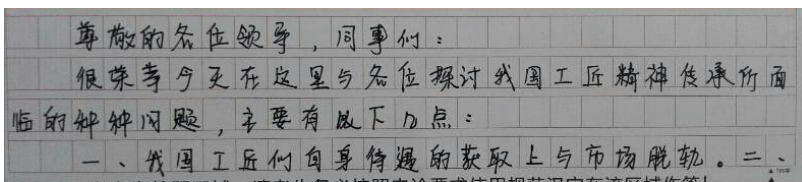 尊敬的各位领导，同事们：
很荣幸今天在这里与各位探讨我国工匠精神传承所面
临的种种问题，主要有以下几点：
一、我国工匠们自身待遇的获取上与市场脱轨。二、